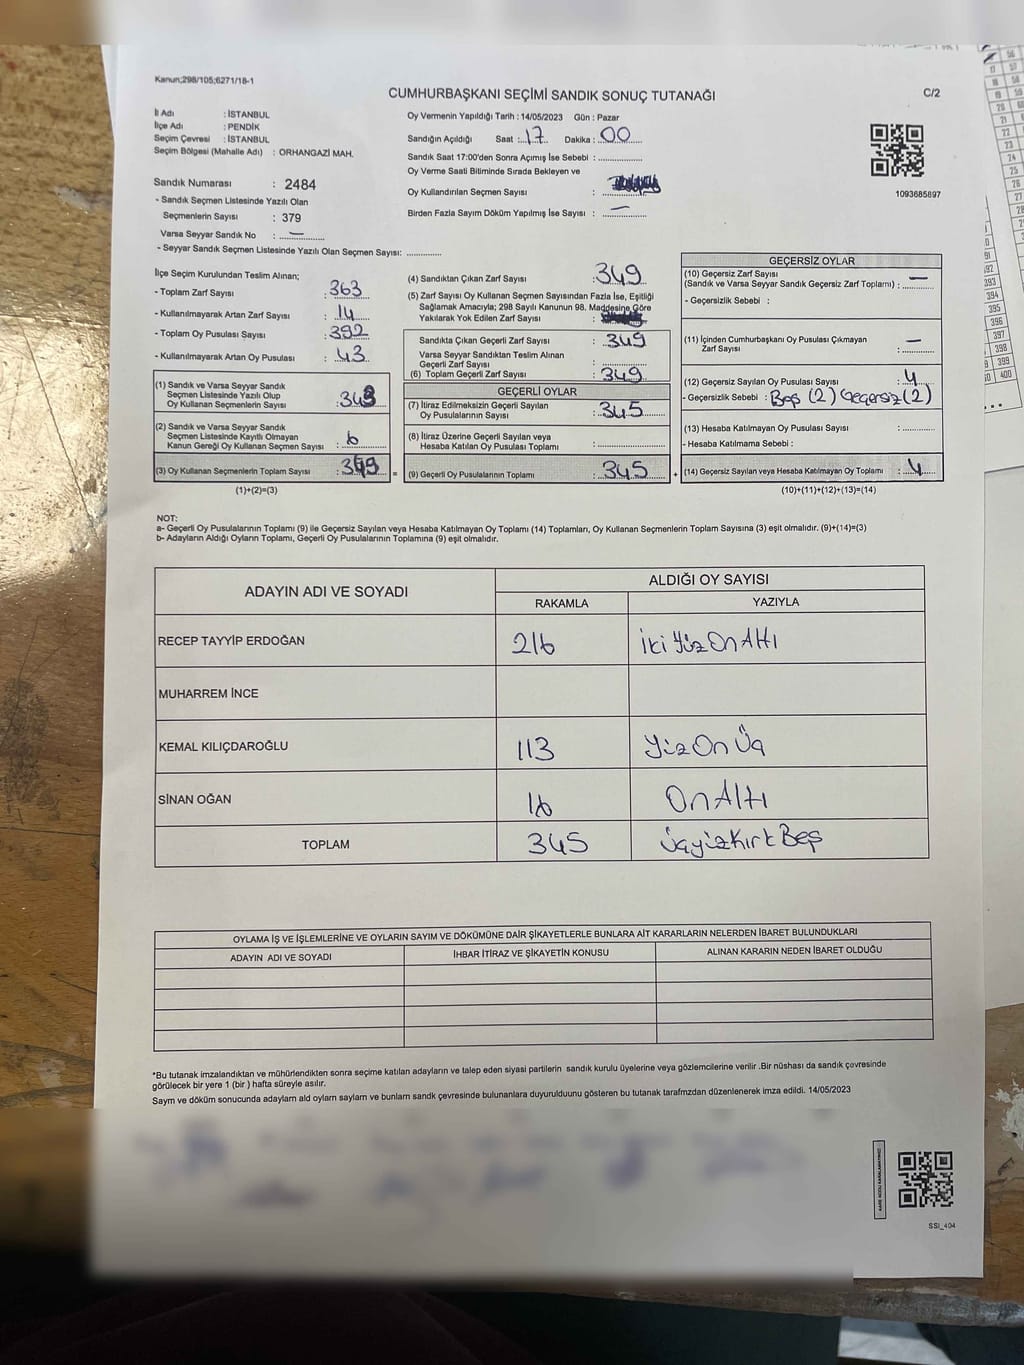 Kanun;298/105;6271/18-1
CUMHURBAŞKANI SEÇİMİ SANDIK SONUÇ TUTANAĞI
C/2
İl Adı : İSTANBUL
İlçe Adı : PENDİK
Seçim Çevresi : İSTANBUL
Seçim Bölgesi (Mahalle Adı) : ORHANGAZİ MAH.
Sandık Numarası : 2484
- Sandık Seçmen Listesinde Yazılı Olan
Seçmenlerin Sayısı : 379
Varsa Seyyar Sandık No : —
- Seyyar Sandık Seçmen Listesinde Yazılı Olan Seçmen Sayısı: ..............
Oy Vermenin Yapıldığı Tarih : 14/05/2023 Gün : Pazar
Sandığın Açıldığı Saat : 17 Dakika : 00
Sandık Saat 17:00'den Sonra Açımış İse Sebebi : ..................
Oy Verme Saati Bitiminde Sırada Bekleyen ve
Oy Kullandırılan Seçmen Sayısı :
Birden Fazla Sayım Döküm Yapılmış İse Sayısı : —
1093685897
İlçe Seçim Kurulundan Teslim Alınan;
- Toplam Zarf Sayısı : 363
- Kullanılmayarak Artan Zarf Sayısı : 14
- Toplam Oy Pusulası Sayısı : 392
- Kullanılmayarak Artan Oy Pusulası : 43
(1) Sandık ve Varsa Seyyar Sandık
Seçmen Listesinde Yazılı Olup
Oy Kullanan Seçmenlerin Sayısı : 343
(2) Sandık ve Varsa Seyyar Sandık
Seçmen Listesinde Kayıtlı Olmayan
Kanun Gereği Oy Kullanan Seçmen Sayısı : 6
(3) Oy Kullanan Seçmenlerin Toplam Sayısı : 349 =
(1)+(2)=(3)
(4) Sandıktan Çıkan Zarf Sayısı : 349
(5) Zarf Sayısı Oy Kullanan Seçmen Sayısından Fazla İse, Eşitliği
Sağlamak Amacıyla; 298 Sayılı Kanunun 98. Maddesine Göre
Yakılarak Yok Edilen Zarf Sayısı :
Sandıkta Çıkan Geçerli Zarf Sayısı : 349
Varsa Seyyar Sandıktan Teslim Alınan
Geçerli Zarf Sayısı :
(6) Toplam Geçerli Zarf Sayısı : 349
GEÇERLİ OYLAR
(7) İtiraz Edilmeksizin Geçerli Sayılan
Oy Pusulalarının Sayısı : 345
(8) İtiraz Üzerine Geçerli Sayılan veya
Hesaba Katılan Oy Pusulası Toplamı :
(9) Geçerli Oy Pusulalarının Toplamı : 345 +
GEÇERSİZ OYLAR
(10) Geçersiz Zarf Sayısı
(Sandık ve Varsa Seyyar Sandık Geçersiz Zarf Toplamı) : —
- Geçersizlik Sebebi :
(11) İçinden Cumhurbaşkanı Oy Pusulası Çıkmayan
Zarf Sayısı : —
(12) Geçersiz Sayılan Oy Pusulası Sayısı : 4
- Geçersizlik Sebebi : Boş (2) Geçersiz (2)
(13) Hesaba Katılmayan Oy Pusulası Sayısı :
- Hesaba Katılmama Sebebi :
(14) Geçersiz Sayılan veya Hesaba Katılmayan Oy Toplamı : 4
(10)+(11)+(12)+(13)=(14)
NOT:
a- Geçerli Oy Pusulalarının Toplamı (9) ile Geçersiz Sayılan veya Hesaba Katılmayan Oy Toplamı (14) Toplamları, Oy Kullanan Seçmenlerin Toplam Sayısına (3) eşit olmalıdır. (9)+(14)=(3)
b- Adayların Aldığı Oyların Toplamı, Geçerli Oy Pusulalarının Toplamına (9) eşit olmalıdır.
ADAYIN ADI VE SOYADI
ALDIĞI OY SAYISI
RAKAMLA YAZIYLA
RECEP TAYYİP ERDOĞAN 216 İki Yüz On Altı
MUHARREM İNCE
KEMAL KILIÇDAROĞLU 113 Yüz On Üç
SİNAN OĞAN 16 On Altı
TOPLAM 345 Üçyüz Kırk Beş
OYLAMA İŞ VE İŞLEMLERİNE VE OYLARIN SAYIM VE DÖKÜMÜNE DAİR ŞİKAYETLERLE BUNLARA AİT KARARLARIN NELERDEN İBARET BULUNDUKLARI
ADAYIN ADI VE SOYADI İHBAR İTİRAZ VE ŞİKAYETİN KONUSU ALINAN KARARIN NEDEN İBARET OLDUĞU
*Bu tutanak imzalandıktan ve mühürlendikten sonra seçime katılan adayların ve talep eden siyasi partilerin sandık kurulu üyelerine veya gözlemcilerine verilir .Bir nüshası da sandık çevresinde
görülecek bir yere 1 (bir ) hafta süreyle asılır.
Sayım ve döküm sonucunda adaylarn ald oylarn saylarn ve bunlarn sandk çevresinde bulunanlara duyurulduunu gösteren bu tutanak tarafmzdan düzenlenerek imza edildi. 14/05/2023
SSI_404